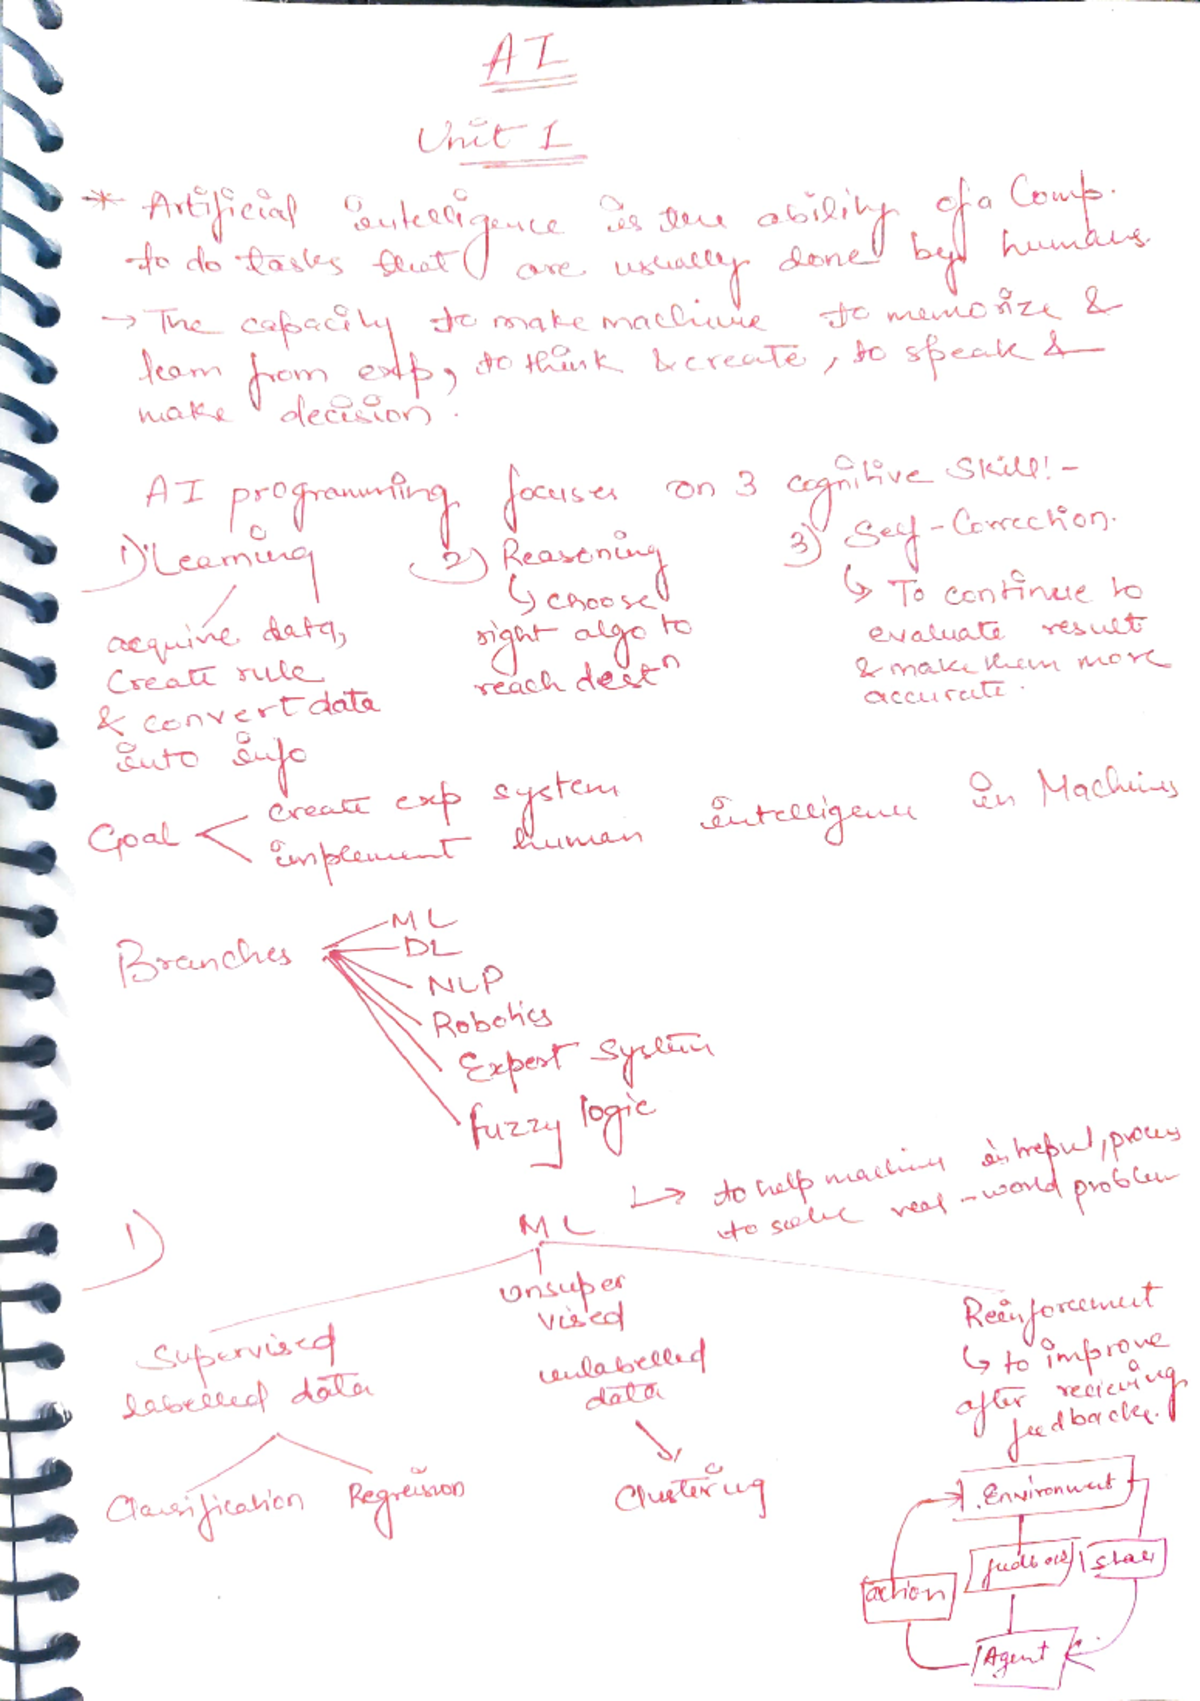 AI
Unit 1
* Artificial intelligence is the ability of a Comp.
to do tasks that are usually done by humans.
→ The capacity to make machine to memorize &
learn from exp, to think & create, to speak &
make decision.
AI programming focuses on 3 cognitive skill:-
1) Learning
acquire data,
create rule
& convert data
into info
2) Reasoning
↳ choose
right algo to
reach destⁿ
3) Self-Correction.
↳ To continue to
evaluate result
& make them more
accurate.
Goal
create exp system
implement human intelligence in Machines
Branches
ML
DL
NLP
Robotics
Expert System
fuzzy logic
1)
ML
↳ to help machine intreput, process
to solve real-world problem
Supervised
labelled data
Classification Regression
Unsuper
vised
unlabelled
data
Clustering
Reinforcement
↳ to improve
after recieving
feedbacks.
Environment
feedback
state
action
Agent